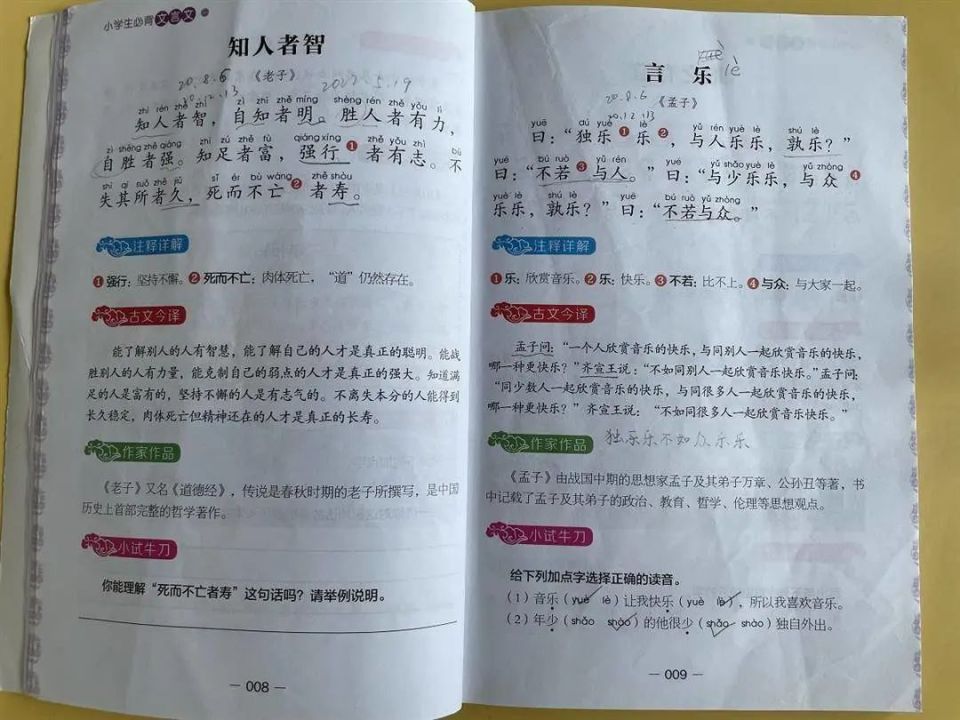 小学生必背文言文
知人者智
20.8.6 《老子》 2022.5.19
20.12.13
zhī rén zhě zhì zì zhī zhě míng shèng rén zhě yǒu lì
知人者智，自知者明。胜人者有力，
zì shèng zhě qiáng zhī zú zhě fù qiǎng xíng zhě yǒu zhì
自胜者强。知足者富，强行❶者有志。不
shī qí suǒ zhě jiǔ sǐ ér bù wáng zhě shòu
失其所者久，死而不亡❷者寿。
注释详解
❶强行：坚持不懈。❷死而不亡：肉体死亡，“道”仍然存在。
古文今译
能了解别人的人有智慧，能了解自己的人才是真正的聪明。能战
胜别人的人有力量，能克制自己的弱点的人才是真正的强大。知道满
足的人是富有的，坚持不懈的人是有志气的。不离失本分的人能得到
长久稳定，肉体死亡但精神还在的人才是真正的长寿。
作家作品
《老子》又名《道德经》，传说是春秋时期的老子所撰写，是中国
历史上首部完整的哲学著作。
小试牛刀
你能理解“死而不亡者寿”这句话吗？请举例说明。
— 008 —
lè
言 乐
20.8.6 《孟子》
20.12.13
yuē dú yuè lè yǔ rén yuè lè shú lè
曰：“独乐❶乐❷，与人乐乐，孰乐？”
yuē bú ruò yǔ rén yuē yǔ shǎo yuè lè yǔ zhòng
曰：“不若❸与人。”曰：“与少乐乐，与众❹
yuè lè shú lè yuē bú ruò yǔ zhòng
乐乐，孰乐？”曰：“不若与众。”
注释详解
❶乐：欣赏音乐。❷乐：快乐。❸不若：比不上。❹与众：与大家一起。
古文今译
孟子问：“一个人欣赏音乐的快乐，与同别人一起欣赏音乐的快乐，
哪一种更快乐？”齐宣王说：“不如同别人一起欣赏音乐快乐。”孟子问：
“同少数人一起欣赏音乐的快乐，与同很多人一起欣赏音乐的快乐，
哪一种更快乐？”齐宣王说：“不如同很多人一起欣赏音乐快乐。”
作家作品 独乐乐不如众乐乐
《孟子》由战国中期的思想家孟子及其弟子万章、公孙丑等著，书
中记载了孟子及其弟子的政治、教育、哲学、伦理等思想观点。
小试牛刀
给下列加点字选择正确的读音。
（1）音乐（yuè lè）让我快乐（yuè lè），所以我喜欢音乐。
（2）年少（shǎo shào）的他很少（shǎo shào）独自外出。
— 009 —